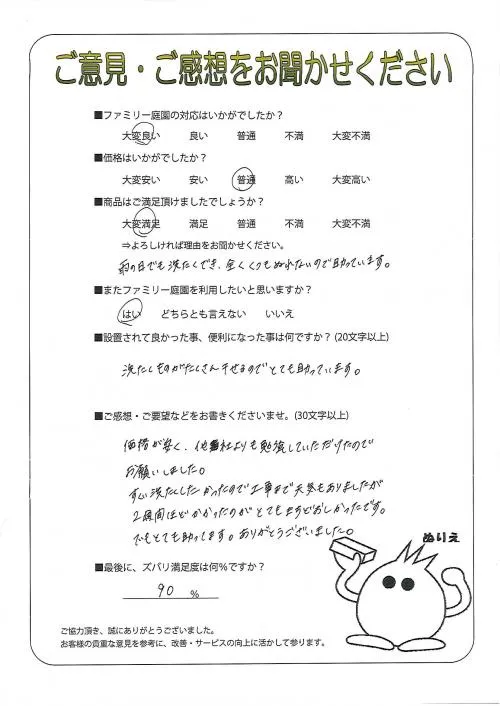 ご意見・ご感想をお聞かせください
■ファミリー庭園の対応はいかがでしたか?
大変良い 良い 普通 不満 大変不満
■価格はいかがでしたか?
大変安い 安い 普通 高い 大変高い
■商品はご満足頂けましたでしょうか?
大変満足 満足 普通 不満 大変不満
⇒よろしければ理由をお聞かせください。
雨の日でも洗たくでき、全くくつもぬれないので助っています。
■またファミリー庭園を利用したいと思いますか?
はい どちらとも言えない いいえ
■設置されて良かった事、便利になった事は何ですか? (20文字以上)
洗たくものがたくさん干せるのでとても助っています。
■ご感想・ご要望などをお書きくださいませ。(30文字以上)
価格が安く、他社よりも勉強していただけたので
お願いしました。
すぐ洗たくしたかったので工事まで天気もありましたが
2週間ほどかかったのがとてもまちどおしかったです。
でもとても助ってます。ありがとうございました。
ぬりえ
■最後に、ズバリ満足度は何%ですか?
90 %
ご協力頂き、誠にありがとうございました。
お客様の貴重な意見を参考に、改善・サービスの向上に活かして参ります。